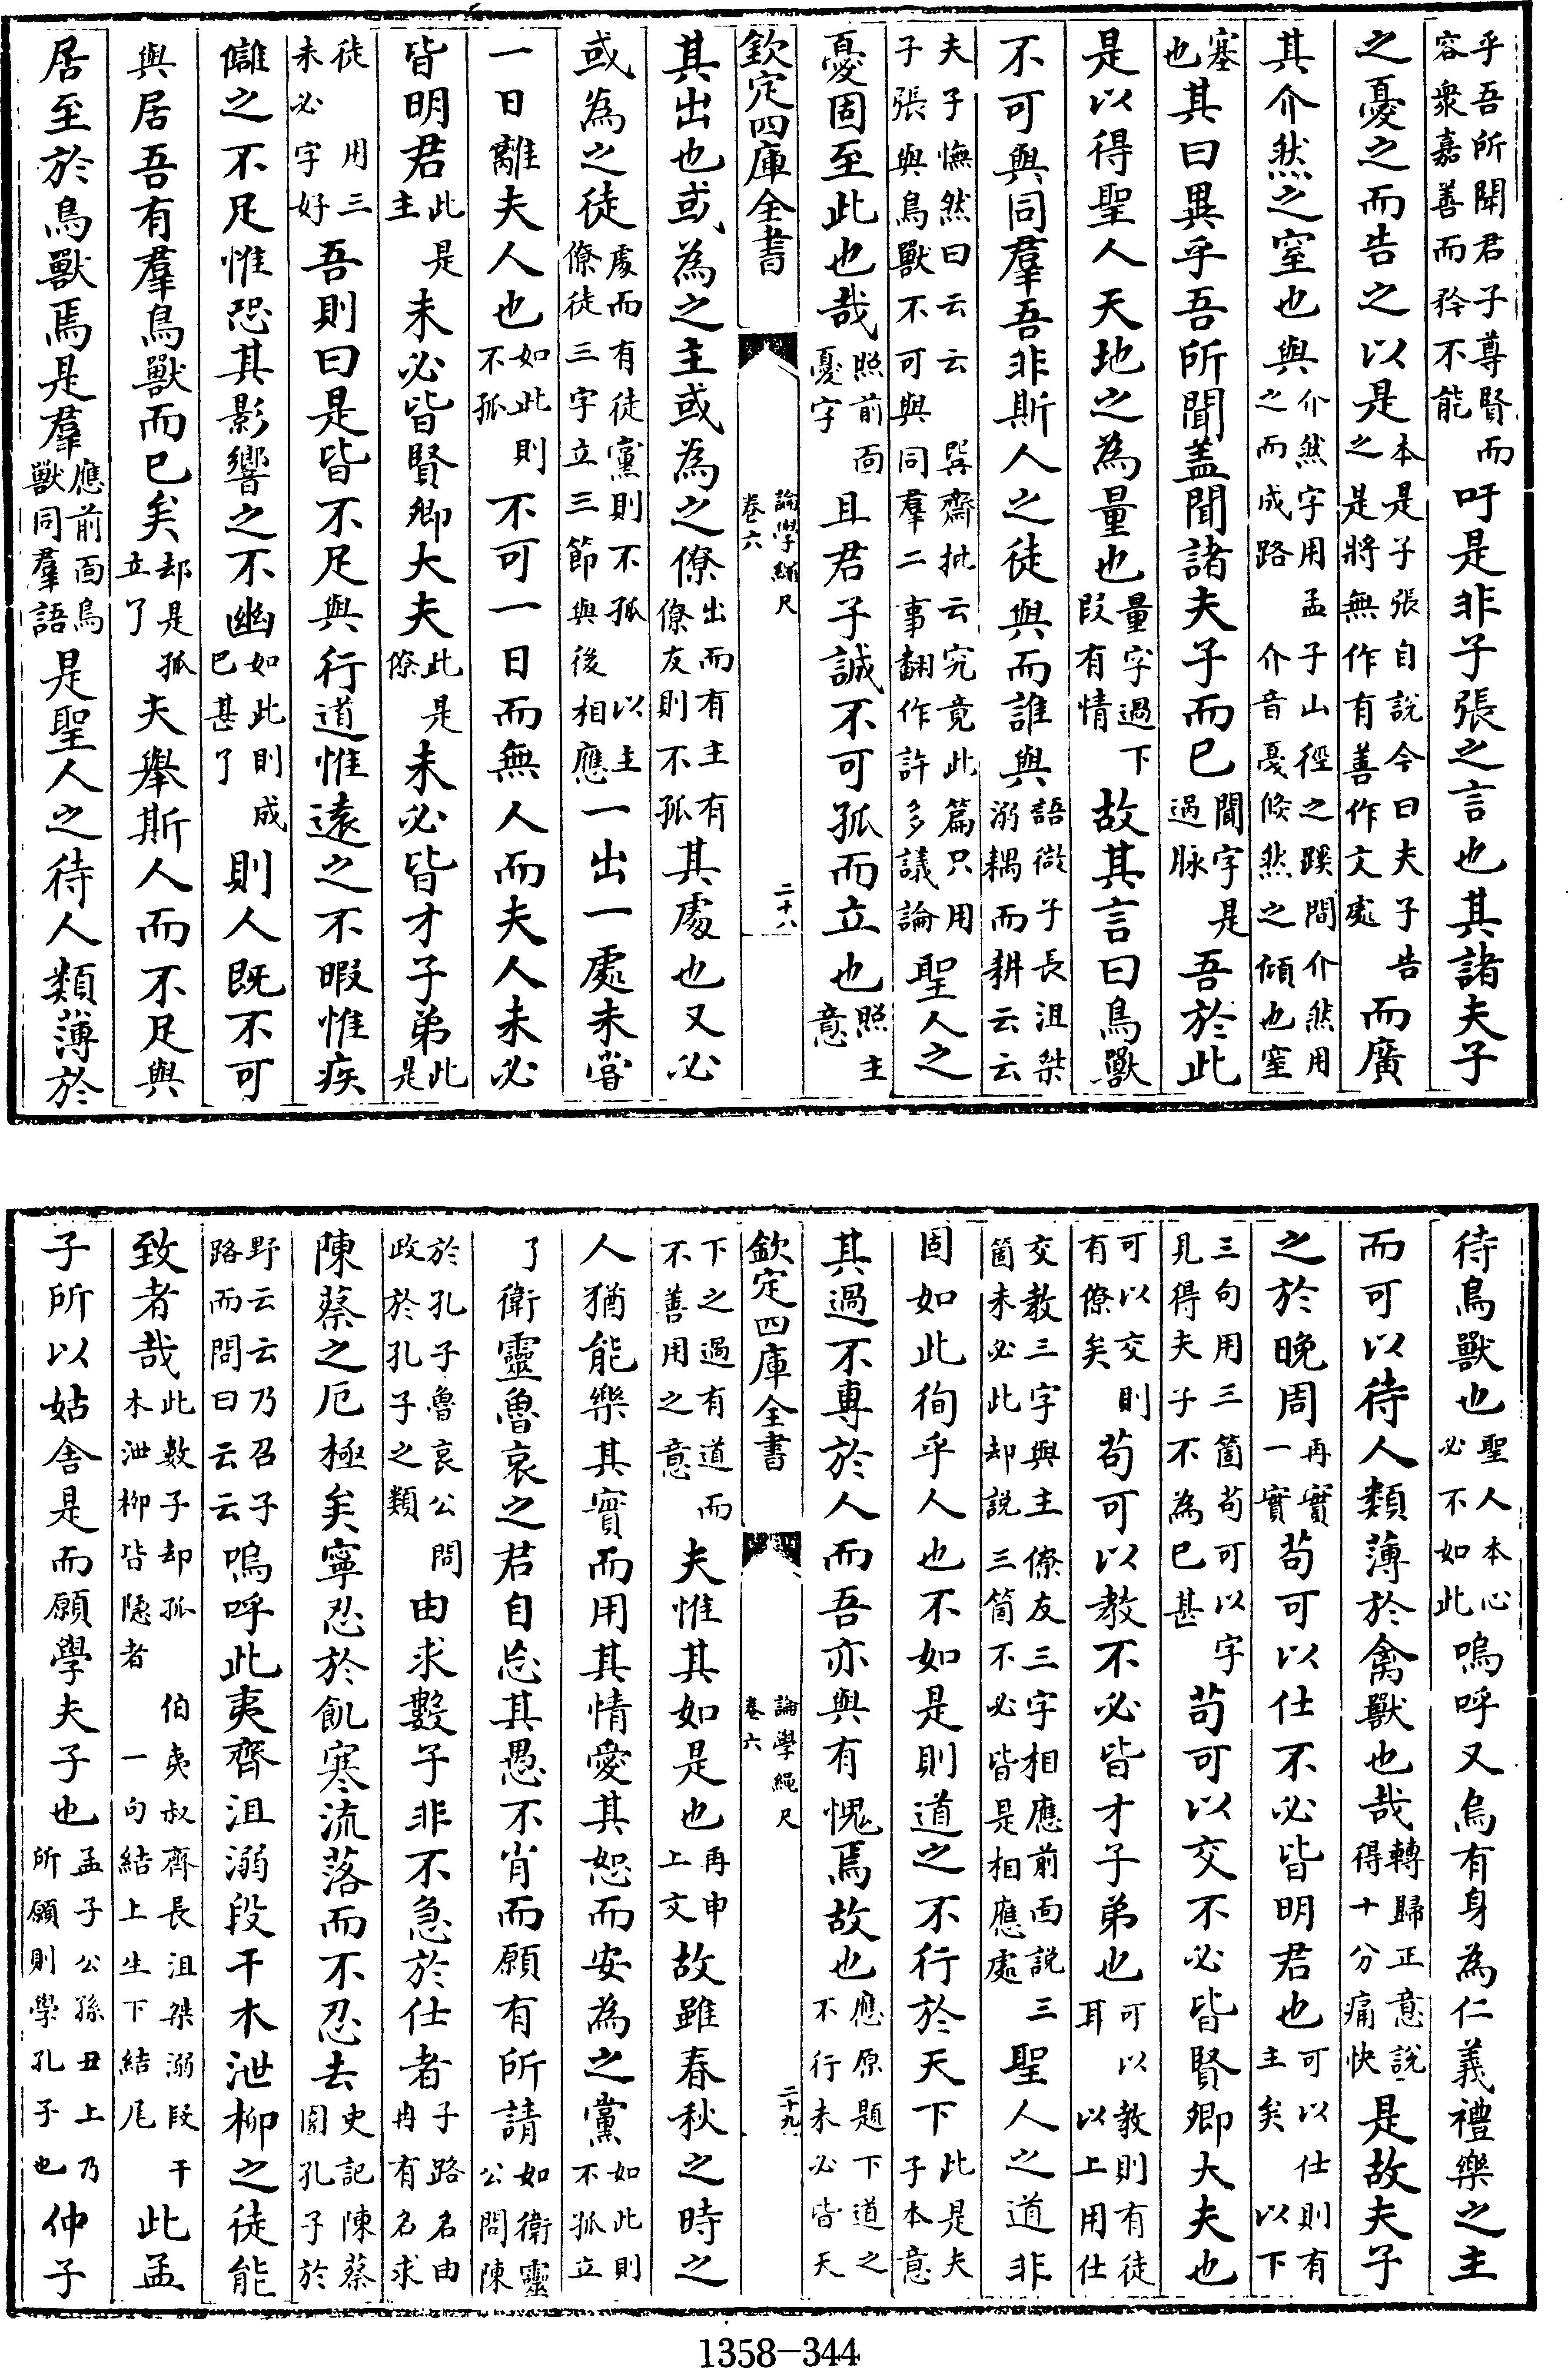 乎吾所聞君子尊賢而容衆嘉善而矜不能吁是非子張之言也其諸夫子
之憂之而告之以是本是子張自說今曰夫子告之是將無作有善作文處而廣
其介然之窒也與介然字用孟子山徑之蹊間介然用之而成路介音戞倏然之傾也窒
塞也其曰異乎吾所聞盖聞諸夫子而已聞字是過脉吾於此
是以得聖人天地之為量也量字過下叚有情故其言曰鳥獸
不可與同羣吾非斯人之徒與而誰與語微子長沮桀溺耦而耕云云
夫子憮然曰云云巽齋批云究竟此篇只用子張與鳥獸不可與同羣二事翻作許多議論聖人之
憂固至此也哉照前面憂字且君子誠不可孤而立也照主意
欽定四庫全書
論學繩尺
卷六
二十八
其出也或為之主或為之僚出而有主有僚友則不孤其處也又必
或為之徒處而有徒黨則不孤以主僚徒三字立三節與後相應一出一處未嘗
一日離夫人也如此則不孤不可一日而無人而夫人未必
皆明君此是主未必皆賢卿大夫此是僚未必皆才子弟此是
徒用三未必字好吾則曰是皆不足與行道惟遠之不暇惟疾
讎之不足惟恐其影響之不幽如此則成已甚了則人既不可
與居吾有羣鳥獸而已矣却是孤立了夫舉斯人而不足與
居至於鳥獸焉是羣應前面鳥獸同羣語是聖人之待人類薄於
待鳥獸也聖人本心必不如此嗚呼又烏有身為仁義禮樂之主
而可以待人類薄於禽獸也哉轉歸正意說得十分痛快是故夫子
之於晚周再實一實苟可以仕不必皆明君也可以仕則有主矣以下
三句用三箇苟可以字見得夫子不為已甚苟可以交不必皆賢卿大夫也
可以交則有僚矣苟可以教不必皆才子弟也可以教則有徒耳以上用仕
交教三字與主僚友三字相應前面說三箇未必此却說三箇不必皆是相應處聖人之道非
固如此徇乎人也不如是則道之不行於天下此是夫子本意
其過不專於人而吾亦與有愧焉故也應原題下道之不行未必皆天
欽定四庫全書
論學繩尺
卷六
二十九
下之過有道而不善用之意夫惟其如是也再申上文故雖春秋之時之
人猶能樂其實而用其情愛其恕而安為之黨如此則不孤立
了衛靈魯哀之君自忘其愚不肖而願有所請如衛靈公問陳
於孔子魯哀公問政於孔子之類由求數子非不急於仕者子路名由冉有名求
陳蔡之厄極矣寧忍於飢寒流落而不忍去史記陳蔡圍孔子於
野云云乃召子路而問曰云云嗚呼此夷齊沮溺段干木泄柳之徒能
致者哉此數子却孤伯夷叔齊長沮桀溺段干木泄柳皆隠者一句結上生下結尾此孟
子所以姑舍是而願學夫子也孟子公孫丑上乃所願則學孔子也仲子
1358-344